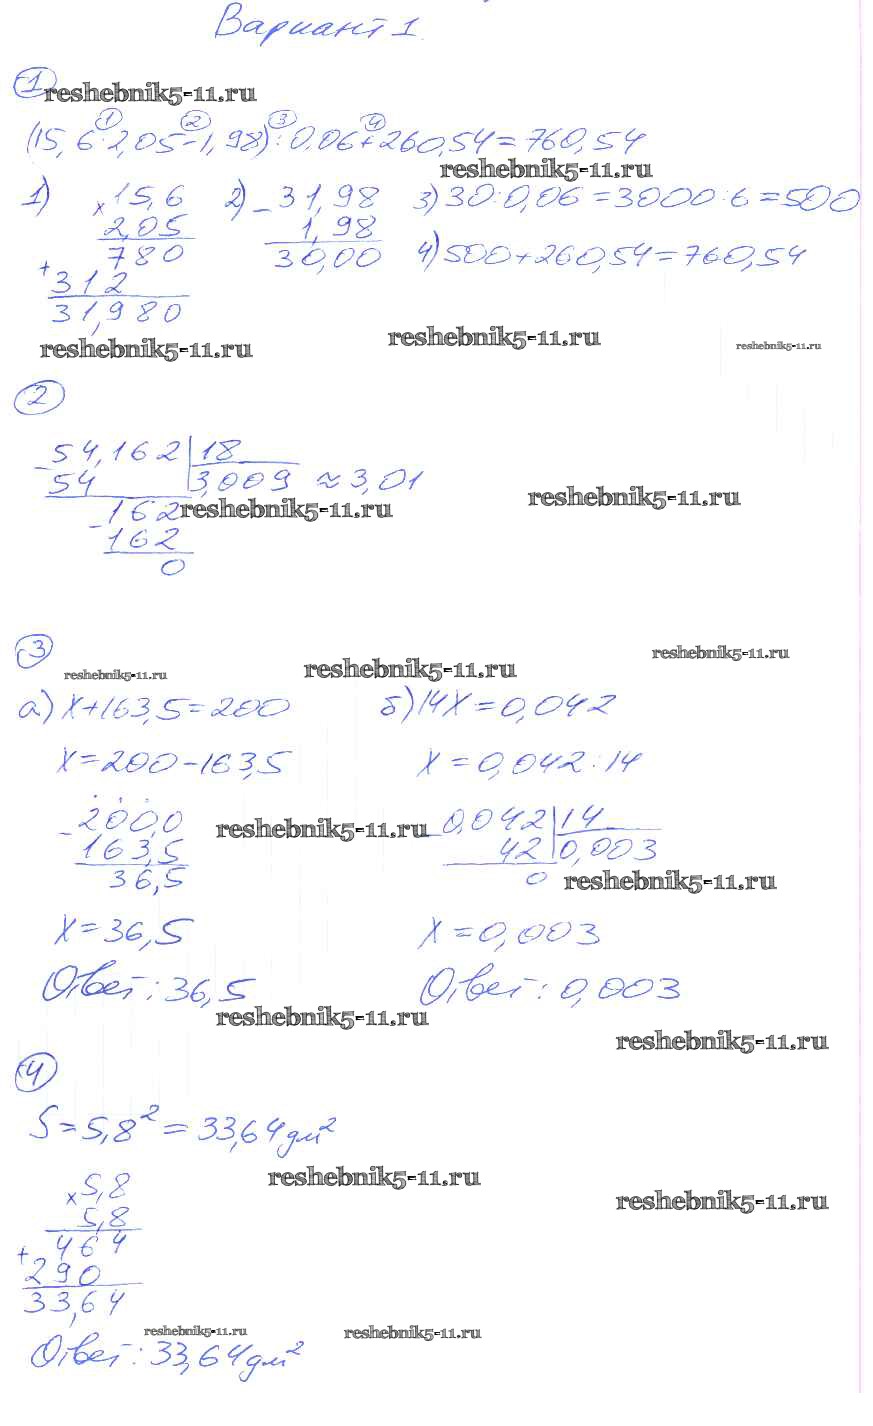 Вариант 1.
1 reshebnik5-11.ru
1 2 3 4
(15,6·2,05-1,98):0,06+260,54=760,54
reshebnik5-11.ru
1) ×15,6 2) -31,98 3) 30:0,06=3000:6=500
2,05 1,98
780 30,00 4) 500+260,54=760,54
+312
31,980
reshebnik5-11.ru reshebnik5-11.ru reshebnik5-11.ru
2
-54,162|18
54 3,009 ≈3,01
-162 reshebnik5-11.ru reshebnik5-11.ru
162
0
3
reshebnik5-11.ru reshebnik5-11.ru reshebnik5-11.ru
а) x+163,5=200 б) 14x=0,042
x=200-163,5 x=0,042:14
-200,0 reshebnik5-11.ru -0,042|14
163,5 42 0,003
36,5 0 reshebnik5-11.ru
x=36,5 x=0,003
Ответ: 36,5 Ответ: 0,003
reshebnik5-11.ru reshebnik5-11.ru
4
S=5,8²=33,64 дм²
reshebnik5-11.ru reshebnik5-11.ru
×5,8
5,8
+464
290
33,64
reshebnik5-11.ru reshebnik5-11.ru
Ответ: 33,64 дм²